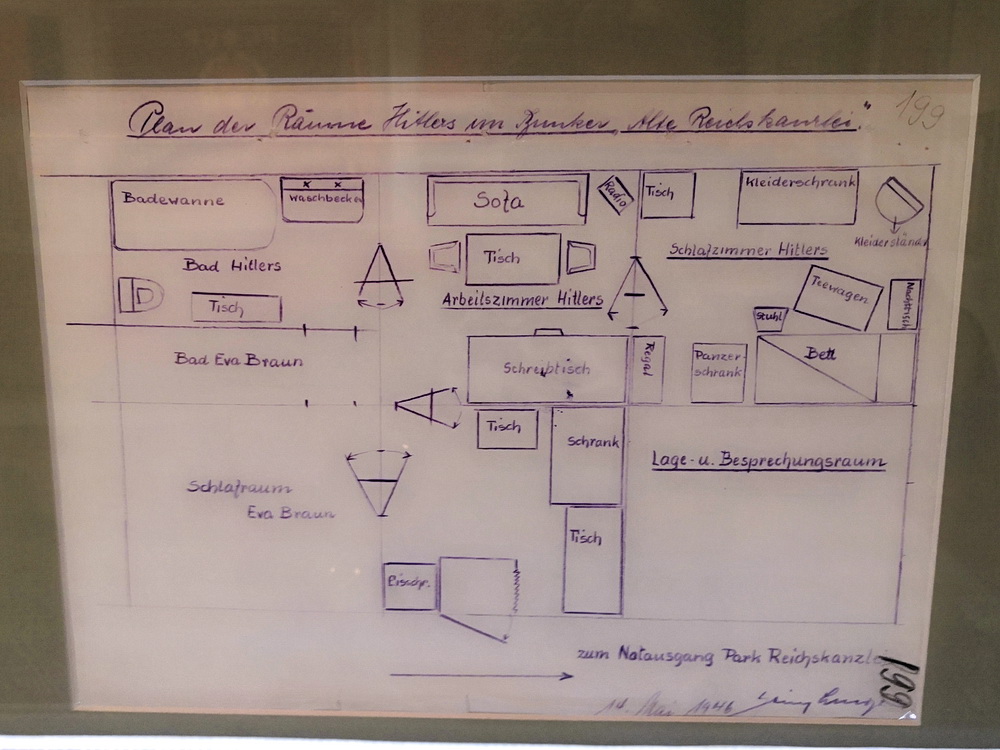 Plan der Räume Hitlers im Bunker „Alte Reichskanzlei."
199
Badewanne
Waschbecken
Sofa
Radio
Tisch
Kleiderschrank
Kleiderständer
Bad Hitlers
Tisch
Tisch
Arbeitszimmer Hitlers
Schlafzimmer Hitlers
Teewagen
Nachttisch
Stuhl
Bad Eva Braun
Schreibtisch
Regal
Panzer-
schrank
Bett
Tisch
Schrank
Lage- u. Besprechungsraum
Schlafraum
Eva Braun
Tisch
Eisschr.
zum Notausgang Park Reichskanzlei
199
14. Mai 1946